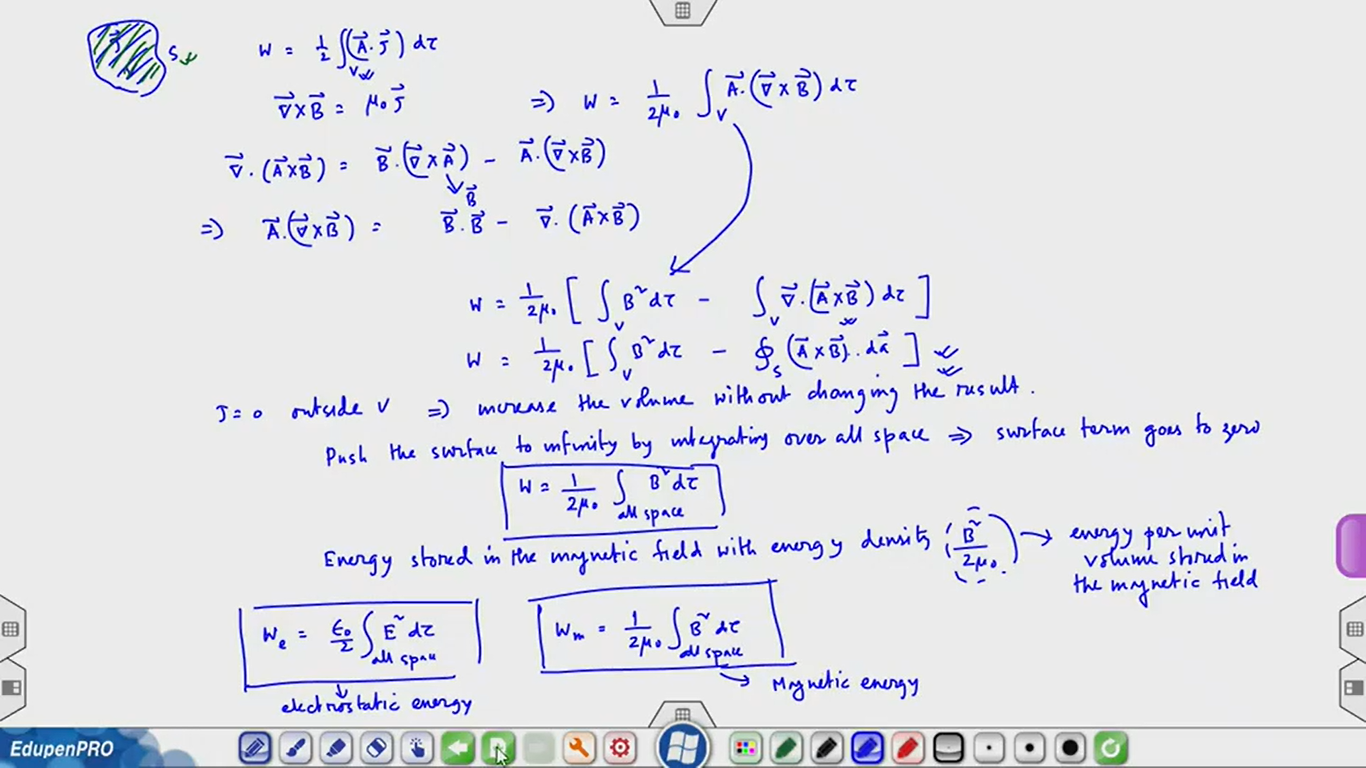 J S
W = 1/2 ∫_V (A⃗ . J⃗) dτ
∇⃗×B⃗ = μ₀ J⃗ ⇒ W = 1/2μ₀ ∫_V A⃗.(∇⃗×B⃗) dτ
∇⃗.(A⃗×B⃗) = B⃗.(∇⃗×A⃗) − A⃗.(∇⃗×B⃗)
B⃗
⇒ A⃗.(∇⃗×B⃗) = B⃗.B⃗ − ∇⃗.(A⃗×B⃗)
W = 1/2μ₀ [ ∫_V B² dτ − ∫_V ∇⃗.(A⃗×B⃗) dτ ]
W = 1/2μ₀ [ ∫_V B² dτ − ∮_S (A⃗×B⃗). da⃗ ]
J = 0 outside V ⇒ increase the volume without changing the result.
Push the surface to infinity by integrating over all space ⇒ surface term goes to zero
W = 1/2μ₀ ∫_all space B² dτ
Energy stored in the magnetic field with energy density (B²/2μ₀) → energy per unit
volume stored in
the magnetic field
W_e = ε₀/2 ∫_all space E² dτ
W_m = 1/2μ₀ ∫_all space B² dτ
electrostatic energy
Magnetic energy
EdupenPRO